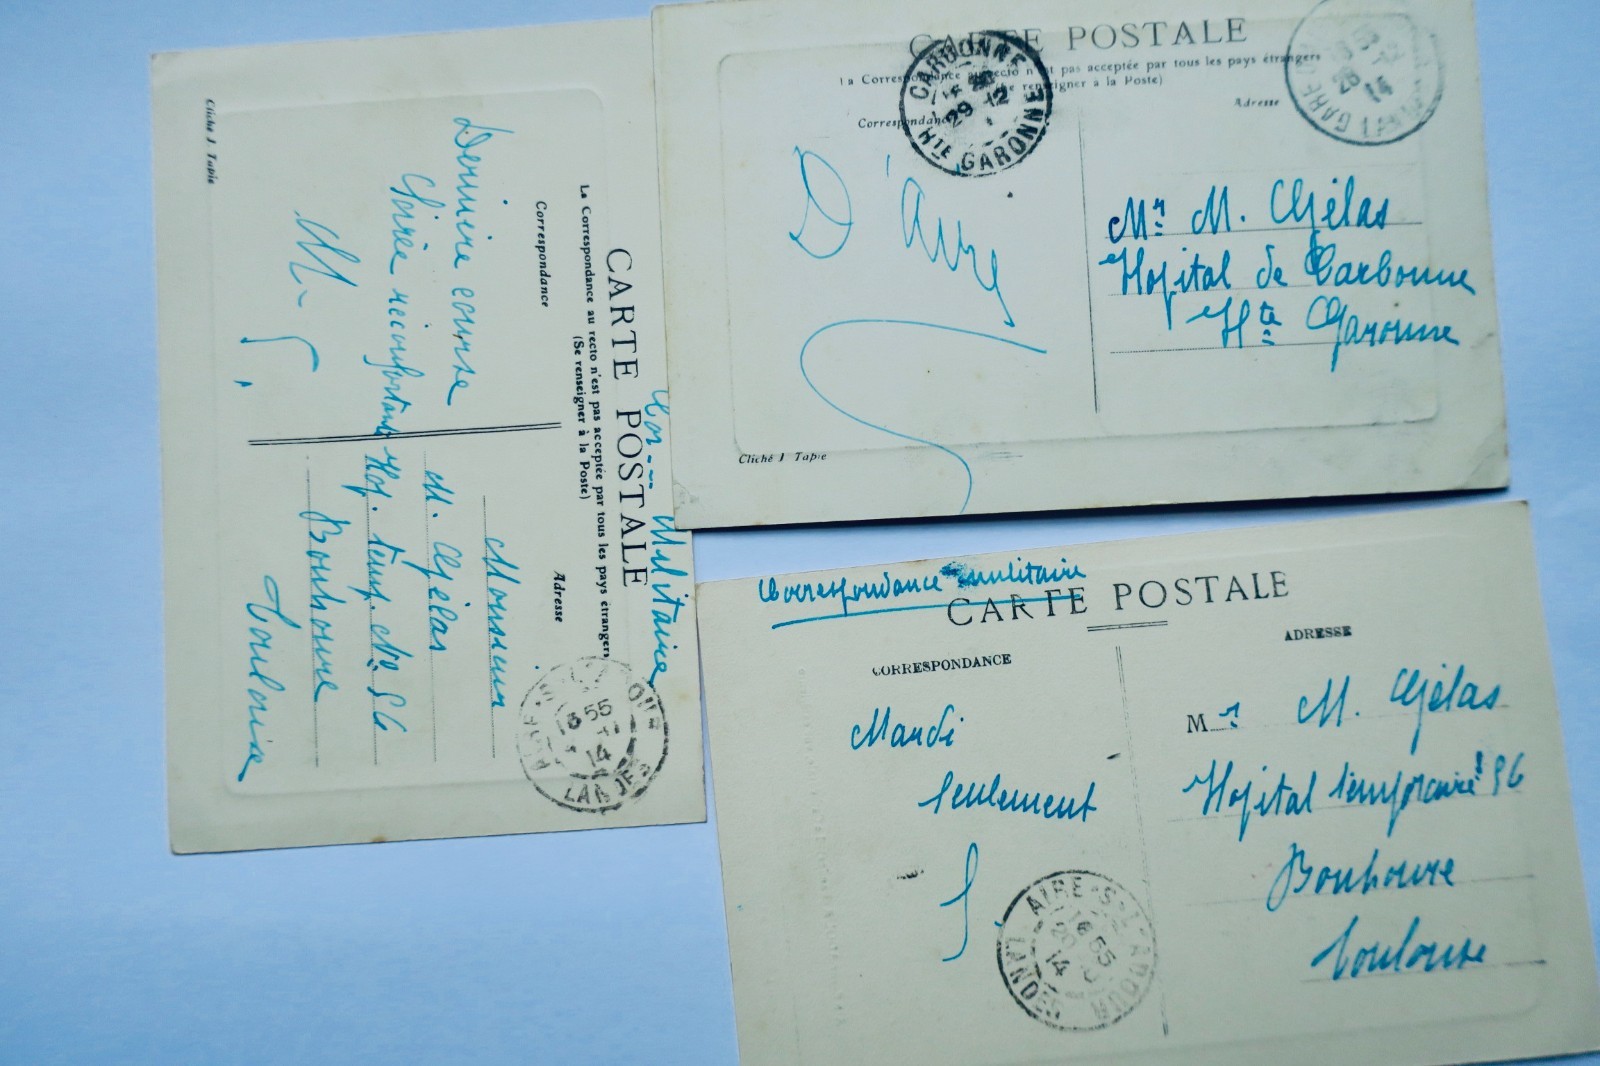 CARTE POSTALE
La Correspondance au recto n'est pas acceptée par tous les pays étrangers
(Se renseigner à la Poste)
Correspondance
Adresse
Cor. Militaire
Dernière course
Soirée réconfortante
M. G.
Monsieur
M. Gjélas
Hop. temp. No 56
Bonhoure
Toulouse
Cliché J Tapie
55
14
LANDES
CARTE POSTALE
La Correspondance au recto n'est pas acceptée par tous les pays étrangers
(Se renseigner à la Poste)
Correspondance
Adresse
CARBONNE
29 12
HTE GARONNE
GARE
28
14
D'Aire
Mr M. Gjélas
Hopital de Carbonne
Hte Garonne
Cliché J Tapie
Correspondance militaire
CARTE POSTALE
CORRESPONDANCE
ADRESSE
Mardi
seulement
Mr M. Gjélas
Hopital temporaire 56
Bonhoure
Toulouse
AIRE-S-L'ADOUR
16 55
20
14
LANDES